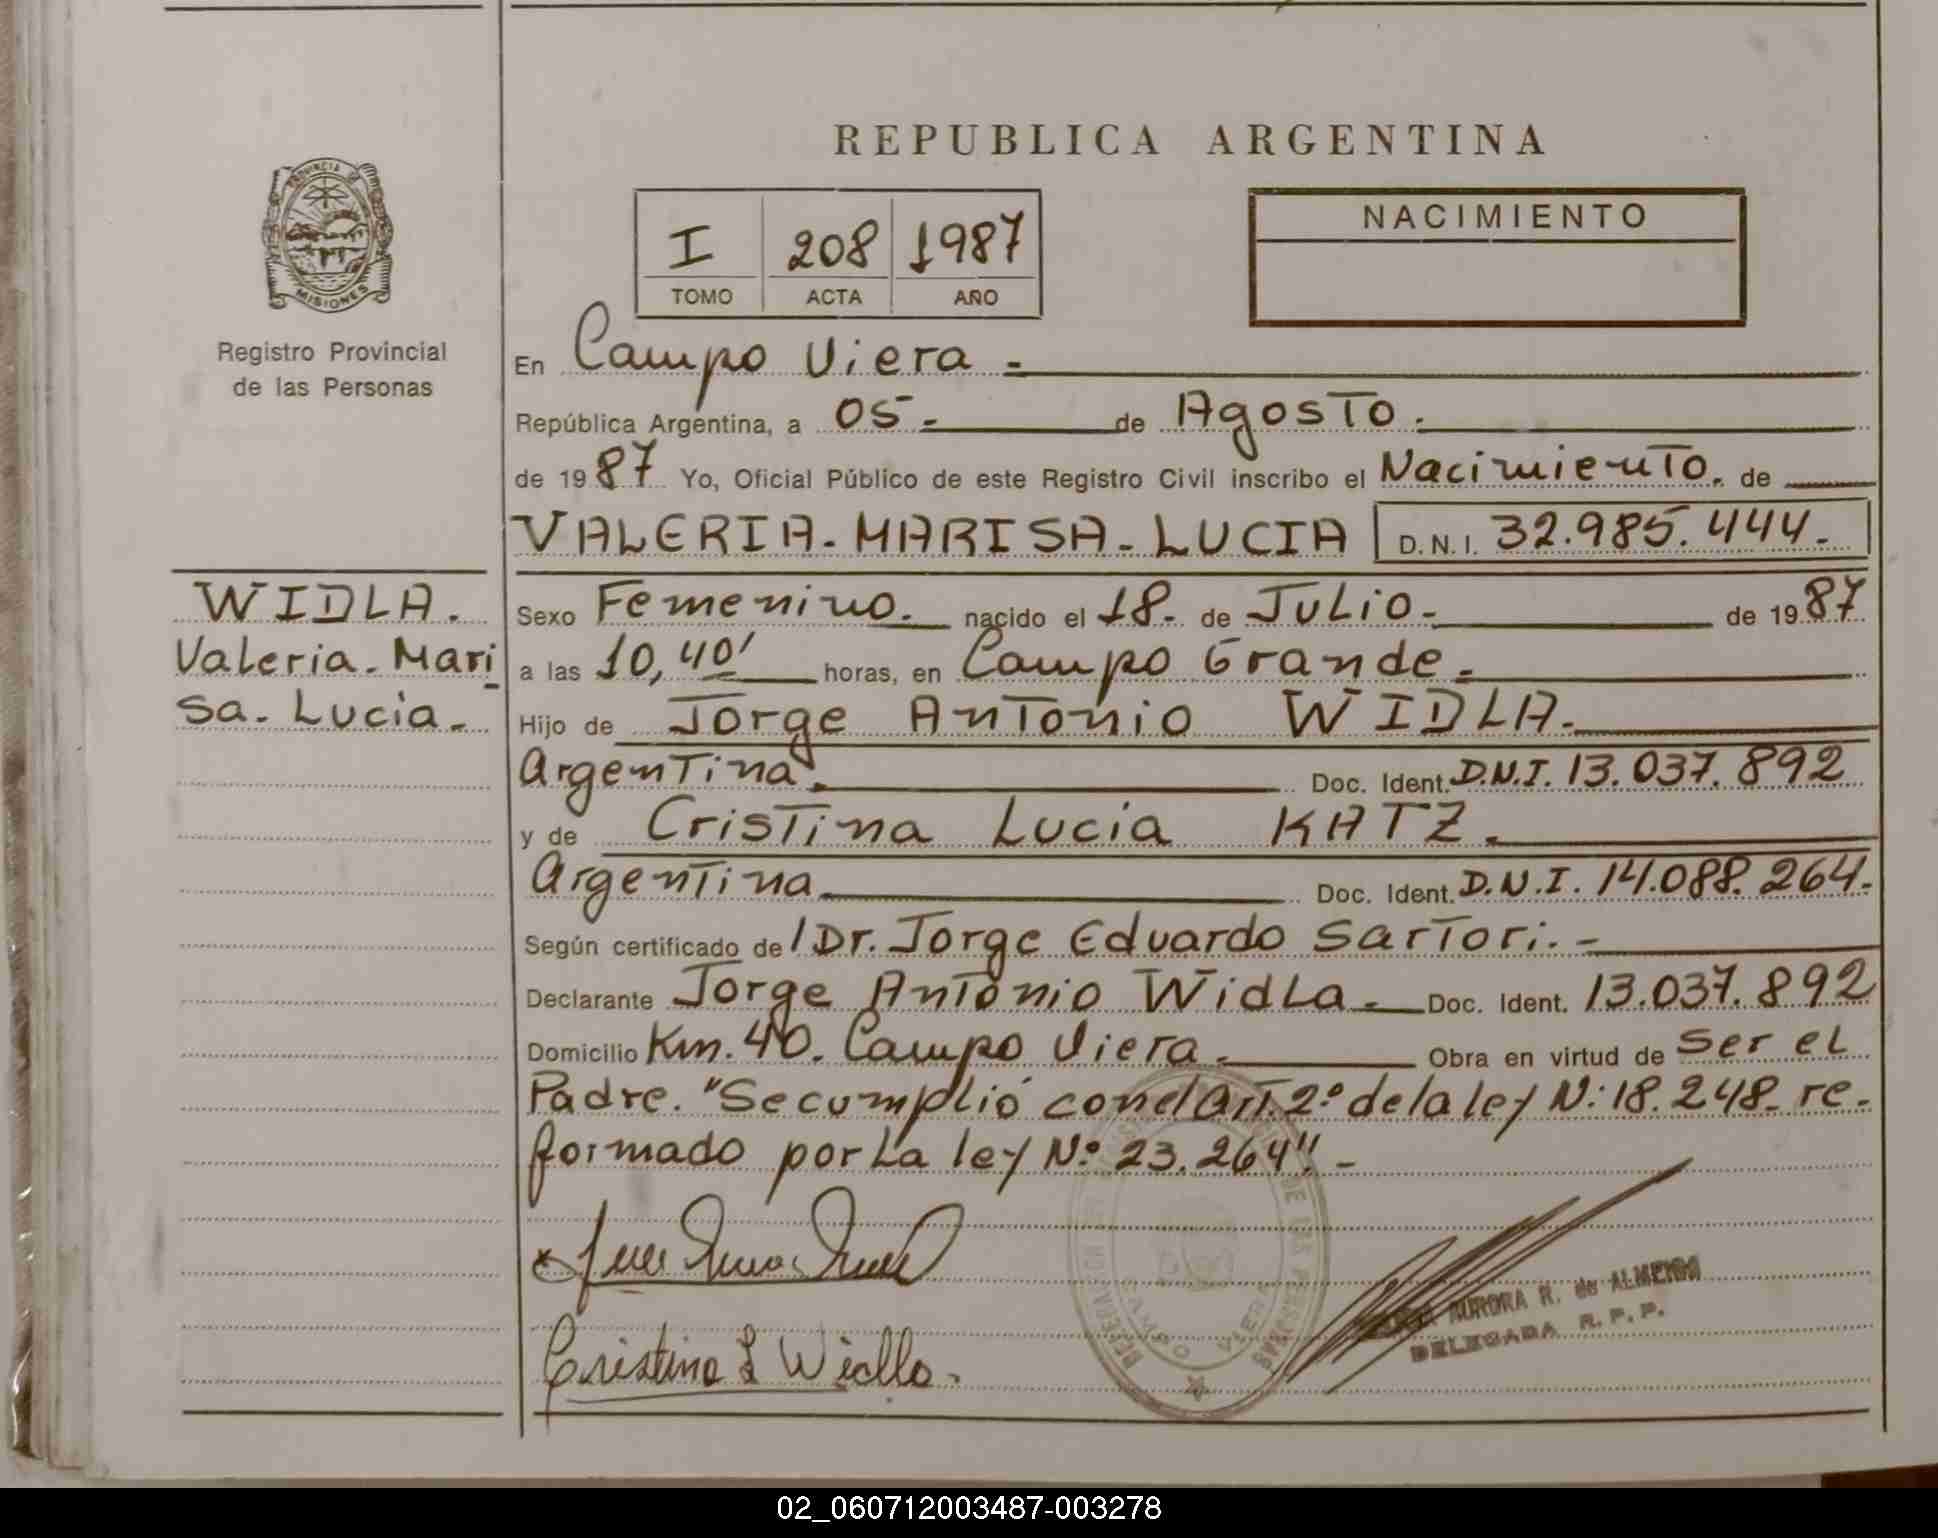 REPUBLICA ARGENTINA
PROVINCIA DE
MISIONES
Registro Provincial
de las Personas
I 208 1987
TOMO ACTA AÑO
NACIMIENTO
En Campo Viera -
República Argentina, a 05- de Agosto.
de 1987 Yo, Oficial Público de este Registro Civil inscribo el Nacimiento. de
VALERIA-MARISA-LUCIA D.N.I. 32.985.444.-
WIDLA.
Valeria-Mari
sa-Lucia-
Sexo Femenino. nacido el 18- de Julio- de 1987
a las 10,40' horas, en Campo Grande-
Hijo de Jorge Antonio WIDLA.
Argentina. Doc. Ident. D.N.I. 13.037.892
y de Cristina Lucia KATZ.
Argentina Doc. Ident. D.N.I. 14.088.264-
Según certificado de/Dr. Jorge Eduardo Sartori.-
Declarante Jorge Antonio Widla- Doc. Ident. 13.037.892
Domicilio Km.40. Campo Viera. Obra en virtud de Ser el
Padre. "Se cumplió con el Art. 2º de la ley N: 18.248- re-
formado por la ley Nº 23.264".-
Cristina L Widla.
AURORA R. de ALMEIDA
DELEGADA R.P.P.
DE LAS PERSONAS
CAMPO VIERA
02_060712003487-003278